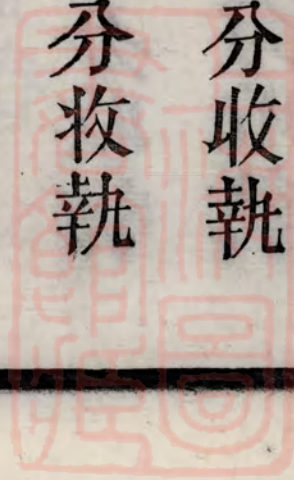 分收執
分收執